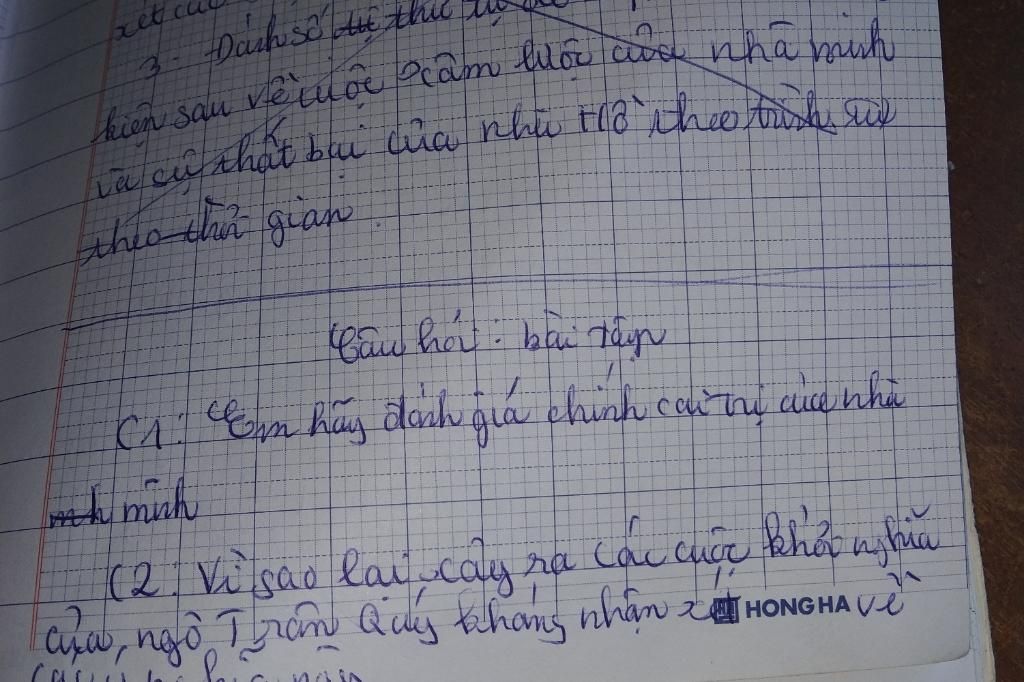 xét cu
3. Đánh số thứ tự
kiện sau về cuộc xâm lược của nhà minh
và sự thất bại của nhà Hồ theo trình sự
theo thời gian.
Câu hỏi: bài tập
C1: Em hãy đánh giá chính cai trị của nhà
minh
C2: Vì sao lại xảy ra các cuộc khởi nghĩa
của, ngô Trần Quý kháng nhận xét HONG HA về